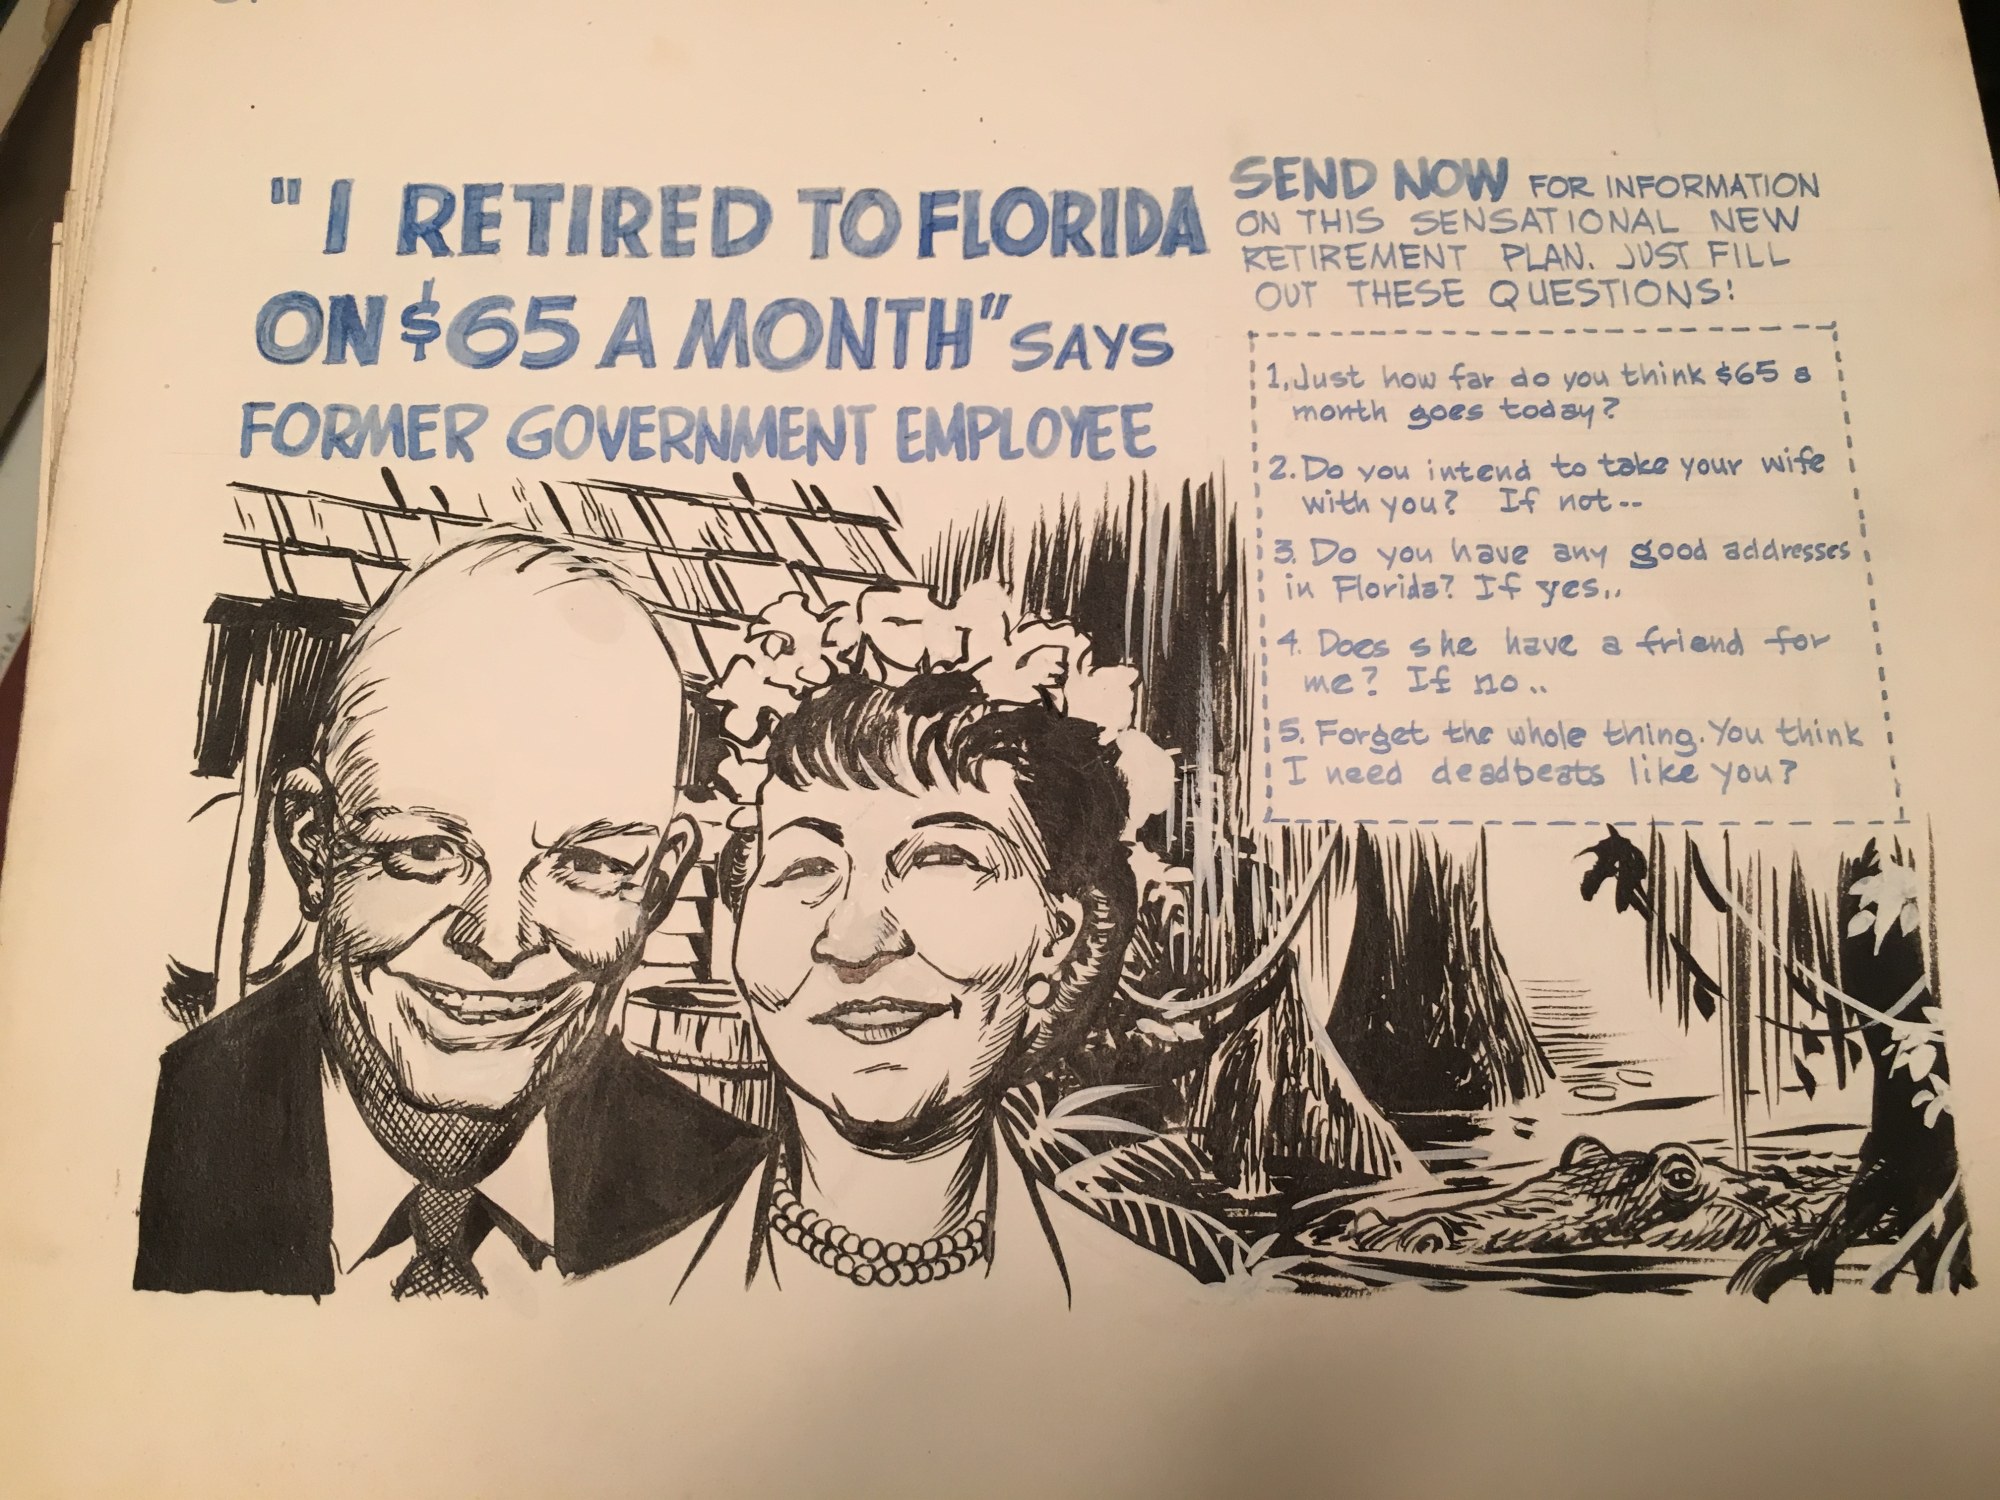 "I RETIRED TO FLORIDA
ON $65 A MONTH" SAYS
FORMER GOVERNMENT EMPLOYEE
SEND NOW FOR INFORMATION
ON THIS SENSATIONAL NEW
RETIREMENT PLAN. JUST FILL
OUT THESE QUESTIONS:
1. Just how far do you think $65 a
month goes today?
2. Do you intend to take your wife
with you? If not--
3. Do you have any good addresses
in Florida? If yes..
4. Does she have a friend for
me? If no..
5. Forget the whole thing. You think
I need deadbeats like you?